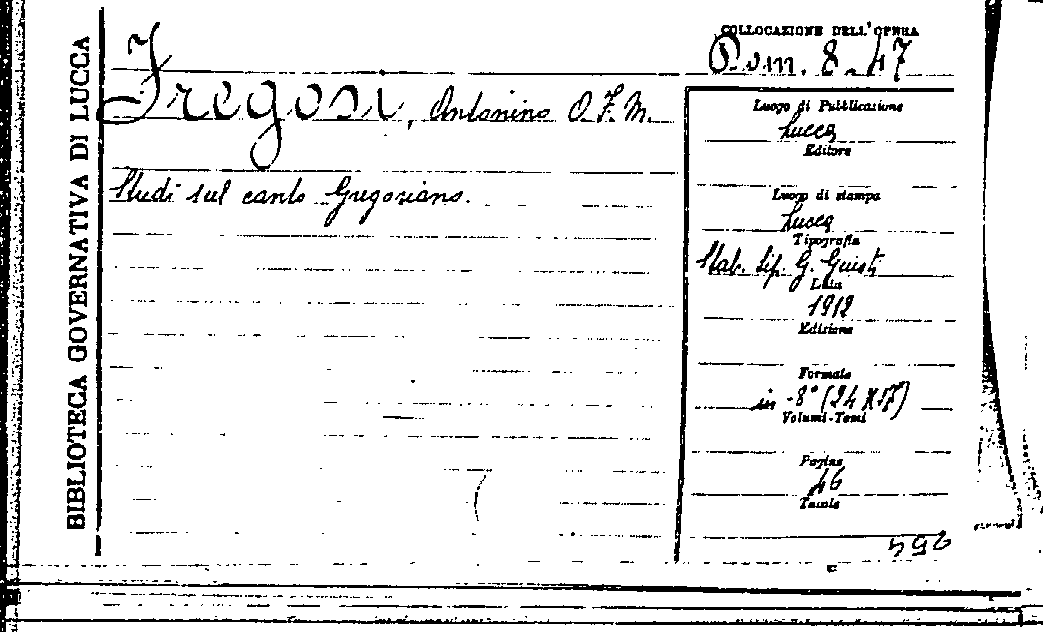 BIBLIOTECA GOVERNATIVA DI LUCCA
COLLOCAZIONE DELL'OPERA
Rom. 8.47
Fregosi, Antonino O.F.M.
Studi sul canto Gregoriano.
Luogo di Pubblicazione
Lucca
Editore
Luogo di stampa
Lucca
Tipografia
Stab. tip. G. Giusti
Data
1912
Edizione
Formato
in-8° (24X17)
Volumi-Tomi
Pagine
46
Tavole